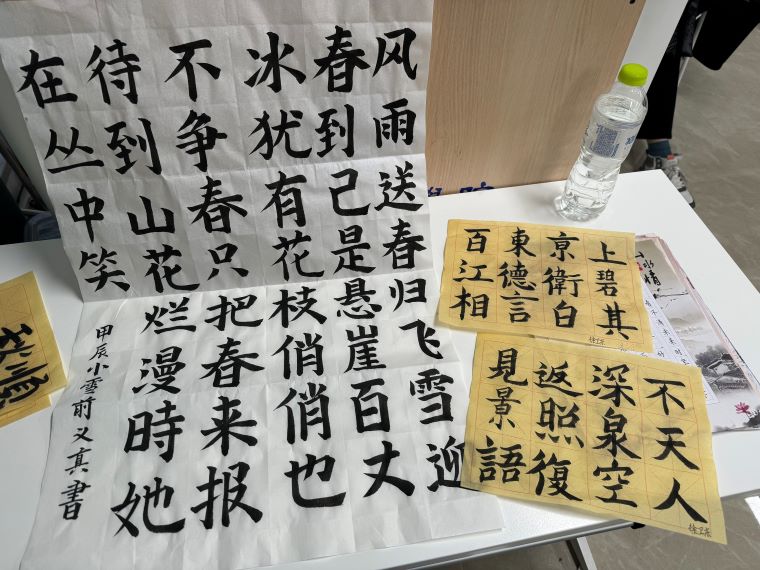 风雨送春归飞雪迎
春到已是悬崖百丈
冰犹有花枝俏俏也
不争春只把春来报
待到山花烂漫時她
在丛中笑
甲辰小雪前义真書
上碧其
京衛白
東德言
百江相
不天人
深泉空
返照復
見景語